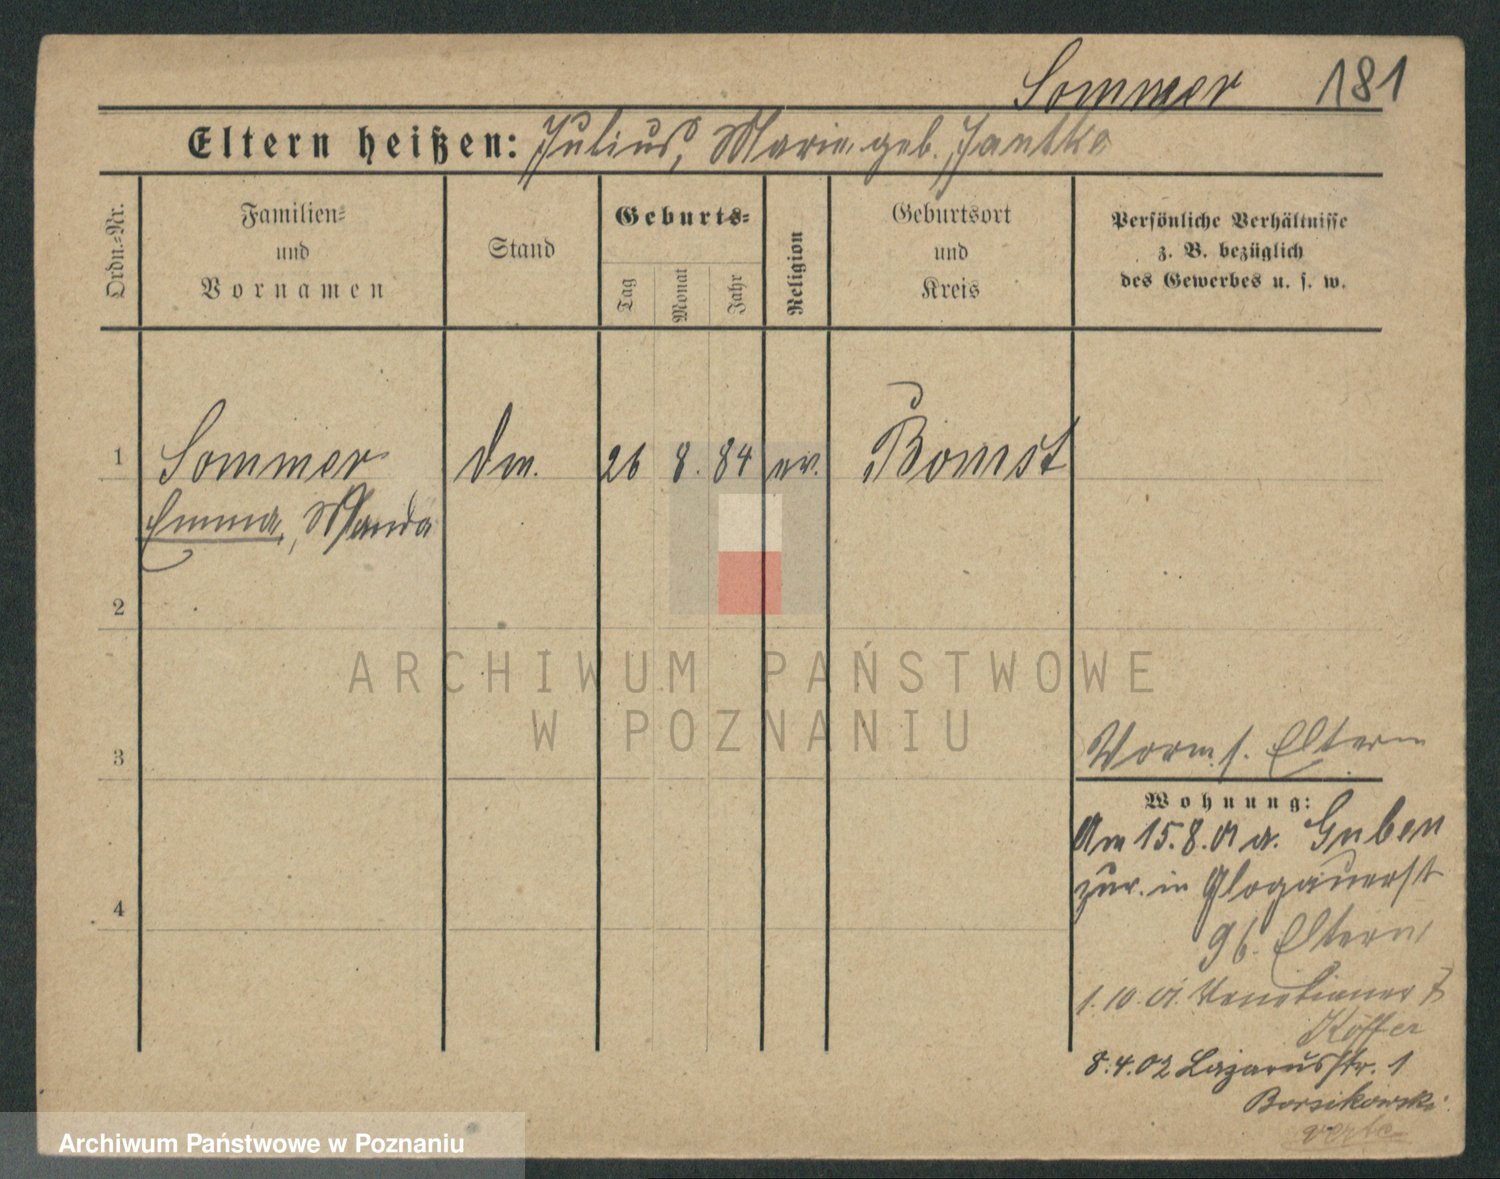 Sommer 181
Eltern heißen: Julius, Marie geb. Jantke
Ordn.-Nr.
Familien-
und
Vornamen
Stand
Geburts-
Tag
Monat
Jahr
Religion
Geburtsort
und
Kreis
Persönliche Verhältnisse
z. B. bezüglich
des Gewerbes u. s. w.
1 Sommer Dm. 26 8. 84 ev. Bomst
Emma, Wanda
2
3
4
ARCHIWUM PAŃSTWOWE
W POZNANIU
Vorm. s. Eltern
Wohnung:
Am 15.8.01 a. Guben
zur. in Glogauerst
96. Eltern
1.10.01. Venetianer
8.4.02 Lazarusstr. 1
Borsikowski
Archiwum Państwowe w Poznaniu